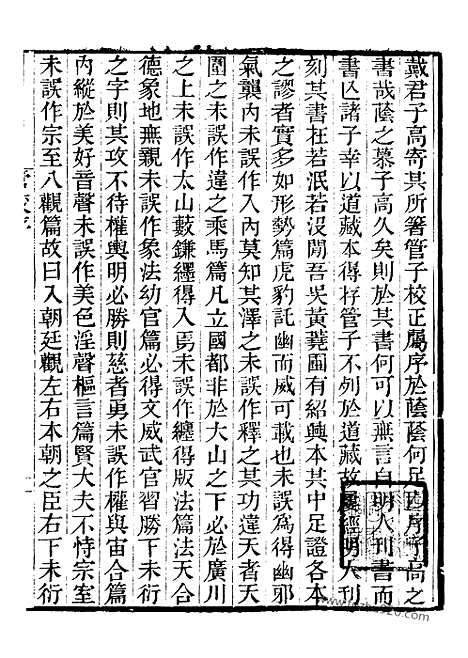 戴君子高寄其所箸管子校正屬序於蔭蔭何足以序子高之
書哉蔭之慕子高久矣則於其書何可以無言自明人刊書而
書亾諸子幸以道藏本得存管子不列於道藏故屢經明人刊
刻其書在若泯若沒閒吾吳黃蕘圃有紹興本其中足證各本
之謬者實多如形勢篇虎豹託幽而威可載也未誤爲得幽邪
氣襲內未誤作入內莫知其澤之未誤作釋之其功逆天者天
圍之未誤作違之乘馬篇凡立國都非於大山之下必於廣川
之上未誤作太山藪鎌纆得入焉未誤作纏得版法篇天合
德象地無親未誤作象法幼官篇必得文威武官習勝下未衍
之字則其攻不待權輿明必勝則慈者勇未誤作權與宙合篇
內縱於美好音聲未誤作美色淫聲樞言篇賢大夫不恃宗室
未誤作宗至八觀篇故曰入朝廷觀左右本朝之臣右下未衍